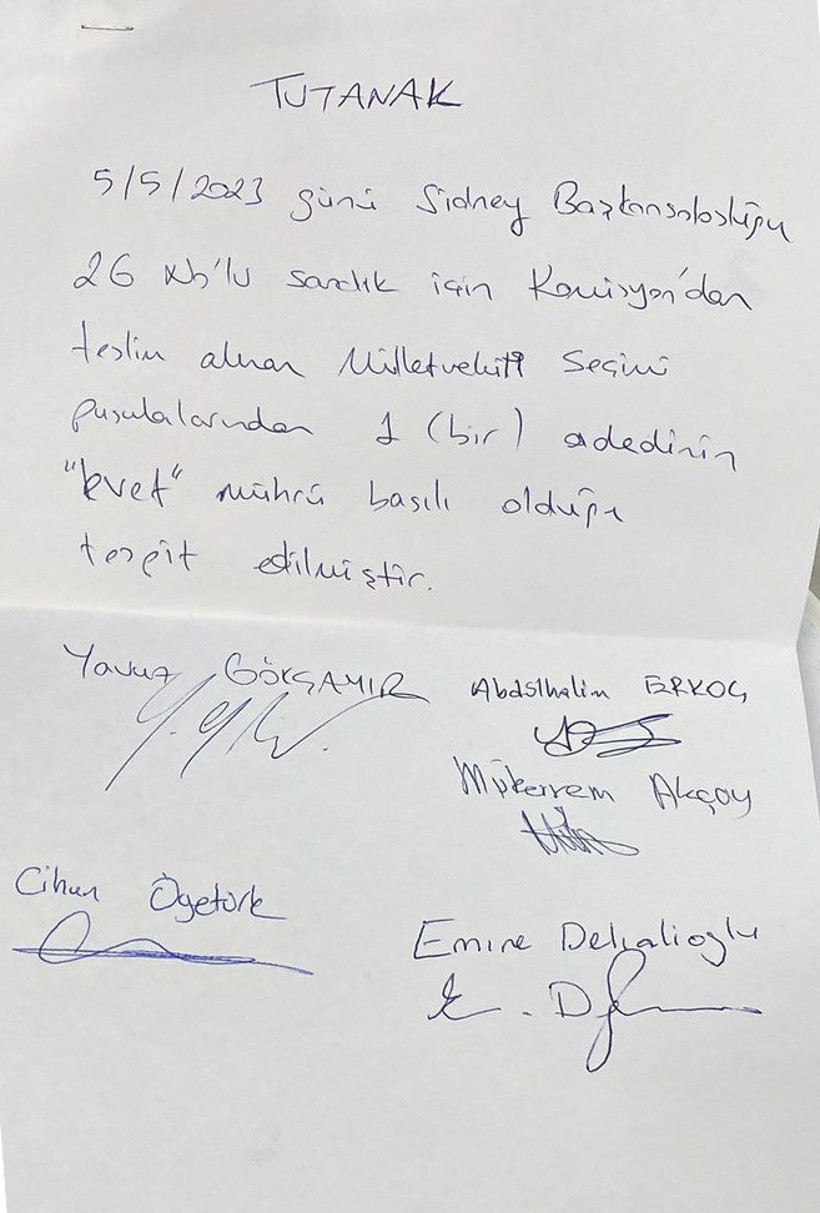 TUTANAK
5/5/2023 günü Sidney Başkonsolosluğu
26 No'lu sandık için Komisyon'dan
teslim alınan Milletvekili Seçimi
pusulalarından 1 (bir) adedinin
"Evet" mührü basılı olduğu
tespit edilmiştir.
Yavuz GÖKÇAMIR
Abdslhalim ERKOÇ
Mükerrem Akçay
Cihan Ögetürk
Emine Delialioglu
E. D